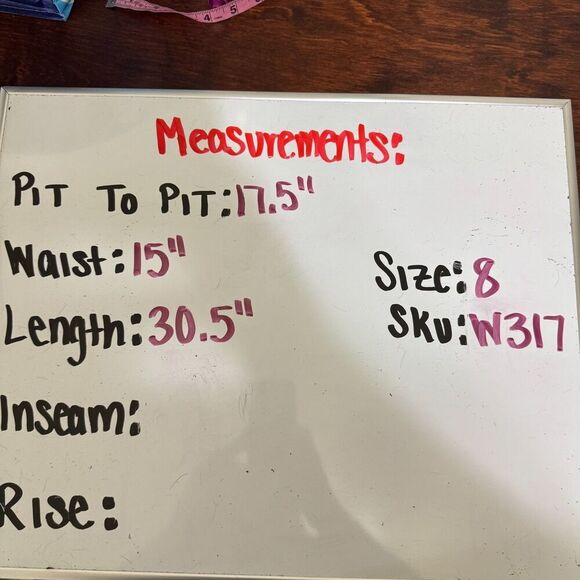 Measurements:
PIT TO PIT: 17.5"
Waist: 15"
Length: 30.5"
Inseam:
Rise:
Size: 8
SKU: W317
4 5